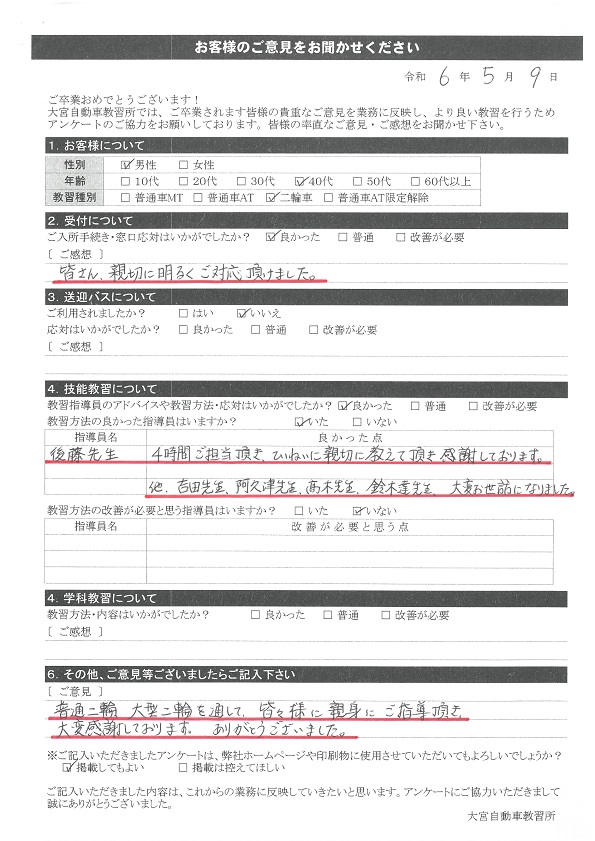 お客様のご意見をお聞かせください
令和 6 年 5 月 9 日
ご卒業おめでとうございます!
大宮自動車教習所では、ご卒業されます皆様の貴重なご意見を業務に反映し、より良い教習を行うため
アンケートのご協力をお願いしております。皆様の率直なご意見・ご感想をお聞かせ下さい。
1. お客様について
性別 ☑男性 □女性
年齢 □10代 □20代 □30代 ☑40代 □50代 □60代以上
教習種別 □普通車MT □普通車AT ☑二輪車 □普通車AT限定解除
2. 受付について
ご入所手続き・窓口応対はいかがでしたか? ☑良かった □普通 □改善が必要
[ ご感想 ]
皆さん、親切に明るくご対応頂けました。
3. 送迎バスについて
ご利用されましたか? □はい ☑いいえ
応対はいかがでしたか? □良かった □普通 □改善が必要
[ ご感想 ]
4. 技能教習について
教習指導員のアドバイスや教習方法・応対はいかがでしたか? ☑良かった □普通 □改善が必要
教習方法の良かった指導員はいますか? ☑いた □いない
指導員名 良かった点
後藤先生 4時間ご担当頂き、ていねいに親切に教えて頂き感謝しております。
他、吉田先生、阿久津先生、高木先生、鈴木達先生、大変お世話になりました。
教習方法の改善が必要と思う指導員はいますか? □いた ☑いない
指導員名 改善が必要と思う点
4. 学科教習について
教習方法・内容はいかがでしたか? □良かった □普通 □改善が必要
[ ご感想 ]
6. その他、ご意見等ございましたらご記入下さい
[ ご意見 ]
普通二輪 大型二輪を通して、皆々様に親身にご指導頂き、
大変感謝しております。 ありがとうございました。
※ご記入いただきましたアンケートは、弊社ホームページや印刷物に使用させていただいてもよろしいでしょうか?
☑掲載してもよい □掲載は控えてほしい
ご記入いただきました内容は、これからの業務に反映していきたいと思います。アンケートにご協力いただきまして
誠にありがとうございました。
大宮自動車教習所